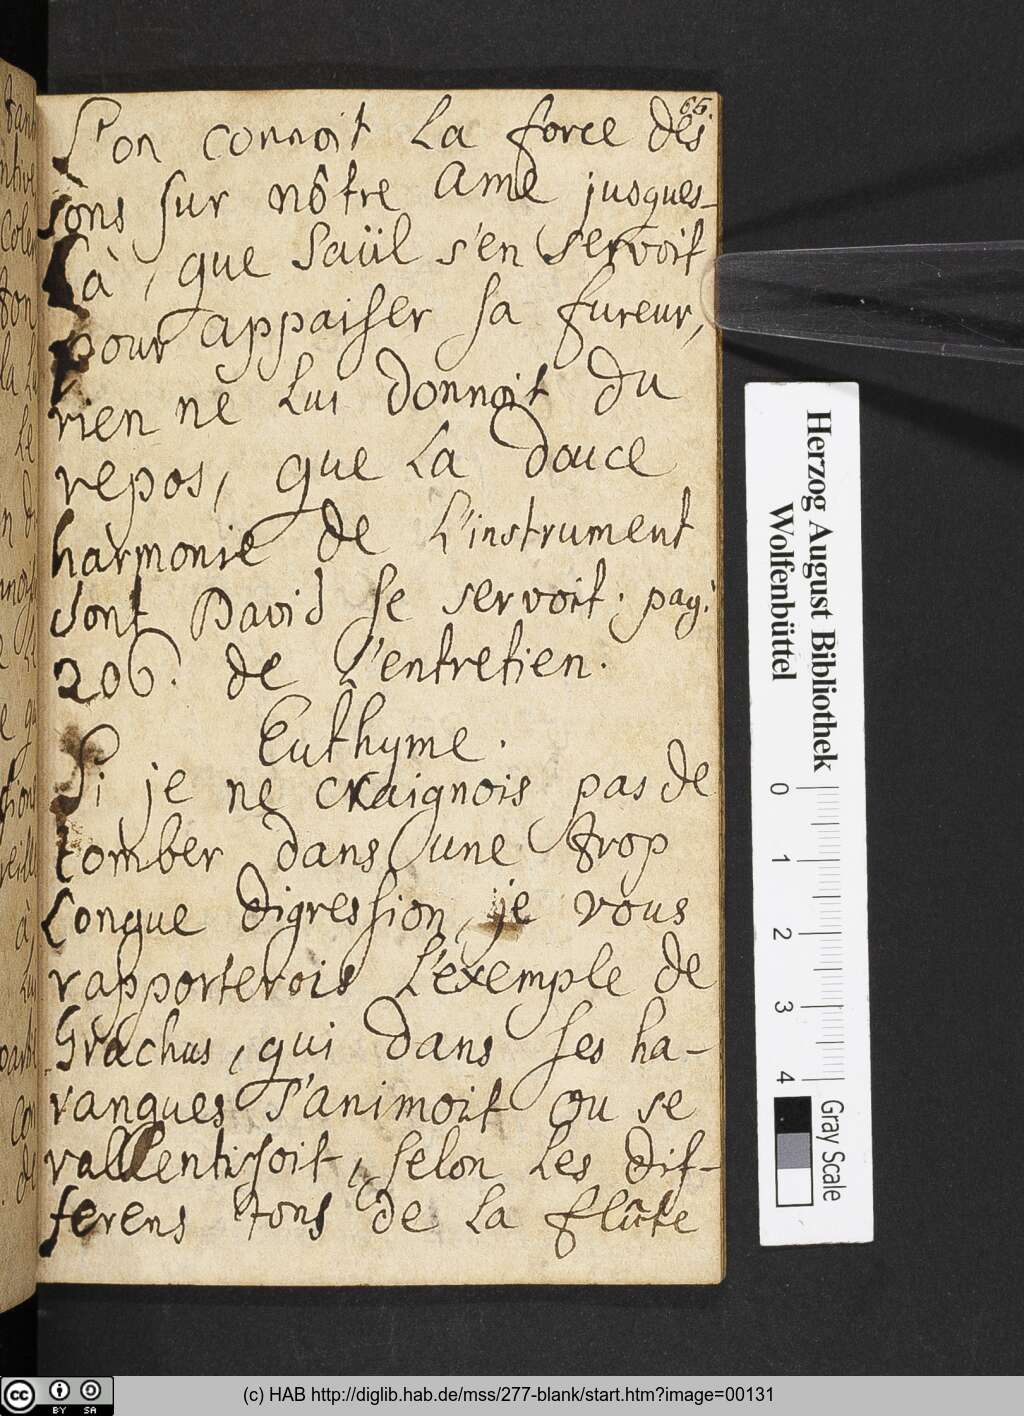 65.
L'on connoit la force des
sons sur nôtre ame jusques-
là, que Saül s'en servoit
pour appaiser sa fureur,
rien ne lui donnoit du
repos, que la douce
harmonie de l'instrument
dont David se servoit. pag:
206. de l'entretien.
Euthyme.
Si je ne craignois pas de
tomber dans une trop
longue digression, je vous
rapporterois l'exemple de
Grachus, qui dans ses ha-
rangues s'animoit ou se
rallentisoit, selon les dif-
ferens tons de la flûte
Herzog August Bibliothek
Wolfenbüttel
0 1 2 3 4
Gray Scale
cc BY SA
(c) HAB http://diglib.hab.de/mss/277-blank/start.htm?image=00131